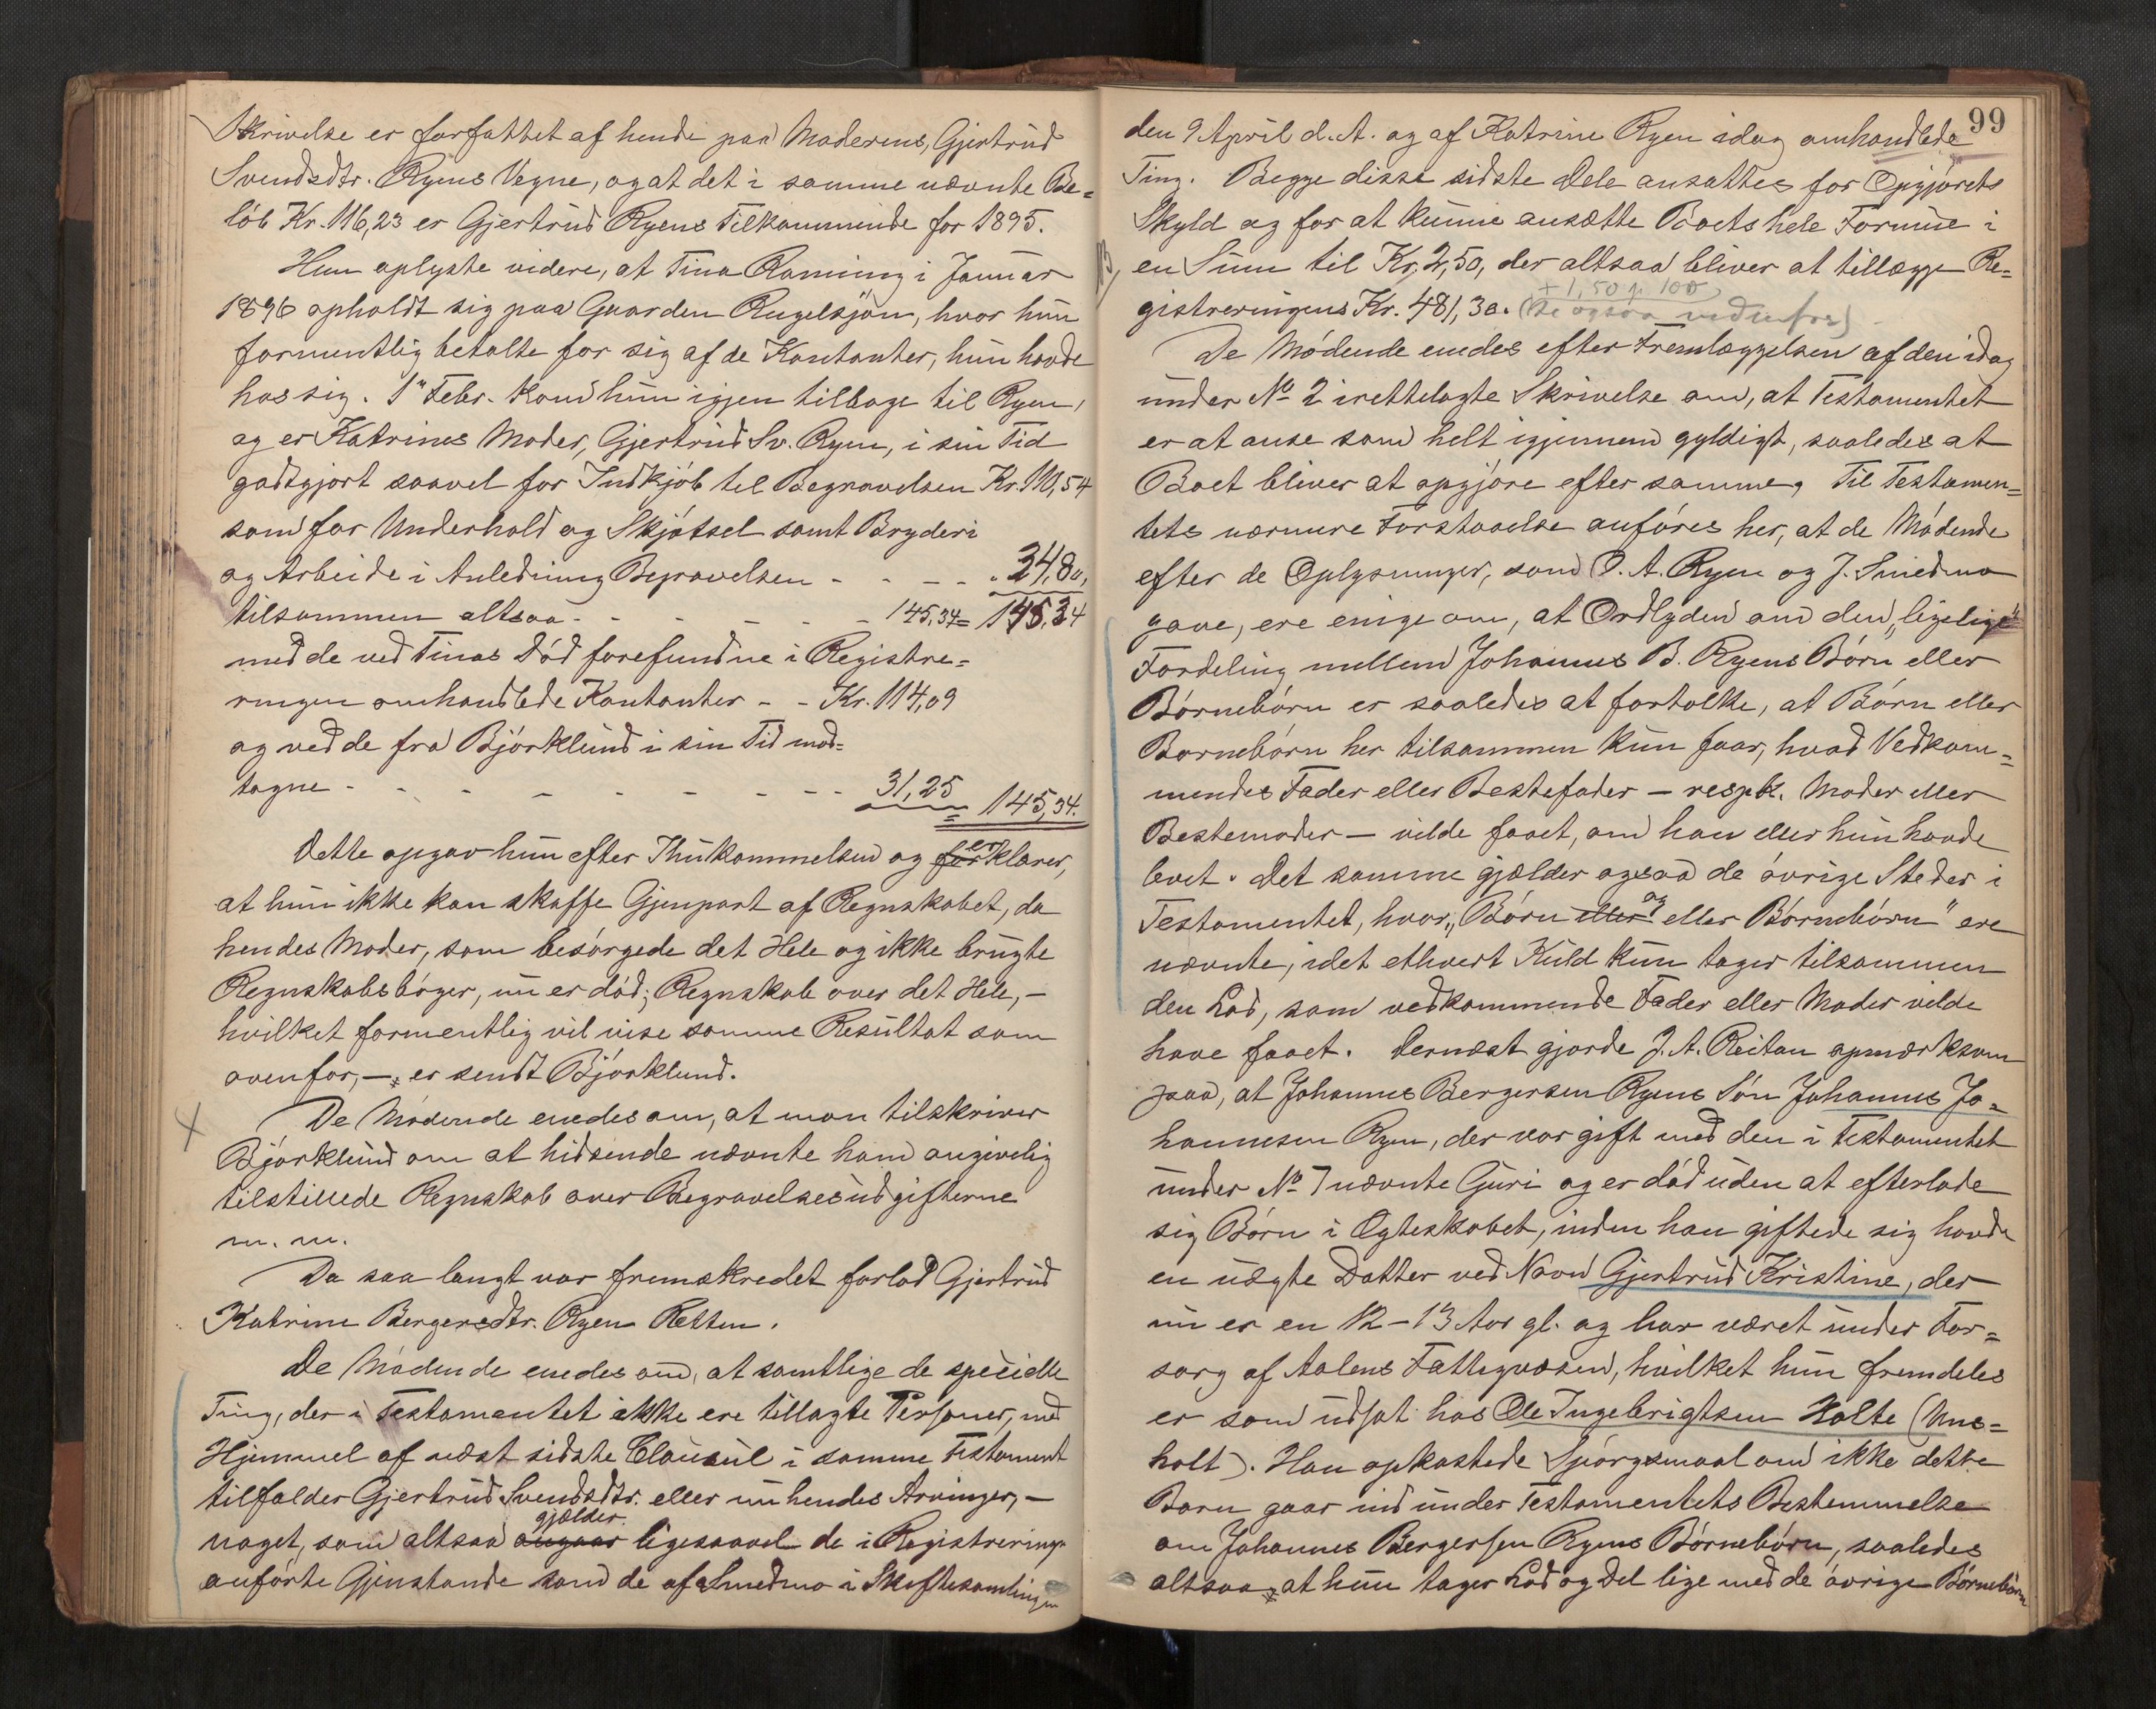 Skrivelse er forfattet af hende paa Moderens, Gjertrud
Svendsdtr. Ryens Vegne, og at det i samme nævnte Be=
löb Kr. 116,23 er Gjertrud Ryens Tilkommende for 1895.
Hun oplyste videre, at Tina Ramning i Januar
1896 opholdt sig paa Gaarden Rugelsjöen, hvor hun
formentlig betalte for sig af de Kontanter, hun havde
hos sig. 1" Febr. kom hun igjen tilbage til Ryen,
og er Katrines Moder, Gjertrud Sv. Ryen, i sin Tid
godtgjort saavel for Indkjöb til Begravelsen Kr. 110,54
som for Underhold og Skjötsel samt Bryderi
og Arbeide i Anledning Begravelsen - - - - " 34,80,
tilsammen altsaa - - - - - - 145,34 = 145,34
med de ved Tinas Död forefundne i Registre=
ringen omhandlede Kontanter - - Kr. 114,09
og ved de fra Björklund i sin Tid mod=
tagne - - - - - - - - - 31,25 = 145,34.
Dette opgav hun efter Ihukommelsen og for er klarer,
at hun ikke kan skaffe Gjenpart af Regnskabet, da
hendes Moder, som besörgede det Hele og ikke brugte
Regnskabsböger, nu er död; Regnskab over det Hele, -
hvilket formentlig vil vise samme Resultat som
ovenfor, - er sendt Björklund.
De Mödende enedes om, at man tilskriver
Björklund om at hidsende nævnte ham angivelig
tilstillede Regnskab over Begravelsesudgifterne
m. m.
Da saa langt var fremskredet forlod Gjertrud
Katrine Bergersdtr. Ryen Retten.
De Mödende enedes om, at samtlige de specielle
Ting, der i Testamentet ikke ere tillagte Personer, med
Hjemmel af næst sidste Clausul i samme Testament
tilfalder Gjertrud Svendsdtr. eller nu hendes Arvinger, -
noget, som altsaa angaar gjælder ligesaavel de i Registrering
anförte Gjenstande som de af Smedmo i Skiftesamlingen
99
den 9 April d. A. og af Katrine Ryen idag omhandlede
Ting. Begge disse sidste Dele ansattes for Opgjörets
Skyld og for at kunne ansætte Boets hele Formue i
en Sum til Kr. 2,50, der altsaa bliver at tillægge Re=
+ 1,50 p 100
gistreringens Kr. 481,30. (Se ogsaa nedenfor)
De Mödende enedes efter Fremlæggelsen af den idag
under No 2 irettelagte Skrivelse om, at Testamentet
er at anse som helt igjennem gyldigt, saaledes at
Boet bliver at opgjöre efter samme. Til Testamen=
tets nærmere Forstaaelse anföres her, at de Mödende
efter de Oplysninger, som O. A. Ryen og J. Smedmo
gave, ere enige om, at Ordlyden om den "ligelige"
Fordeling mellem Johannes B. Ryens Börn eller
Börnebörn er saaledes at fortolke, at Börn eller
Bornebörn her tilsammen kun faar, hvad Vedkom=
mendes Fader eller Bestefader - respkt. Moder eller
Bestemoder - vilde faaet, om han eller hun havde
levet. Det samme gjælder ogsaa de övrige Steder i
Testamentet, hvor "Börn eller og eller Börnebörn" ere
nævnte, idet ethvert Kuld kun tager tilsammen
den Lod, som vedkommende Fader eller Moder vilde
have faaet. Dernæst gjorde J. A. Reitan opmærksom
paa, at Johannes Bergersen Ryens Sön Johannes Jo=
hannesen Ryen, der var gift med den i Testamentet
under No 7 nævnte Guri og er död uden at efterlade
sig Börn i Egteskabet, inden han giftede sig havde
en uægte Datter ved Navn Gjertrud Kristine, der
nu er en 12-13 Aar gl. og har været under For=
sorg af Aalens Fattigvæsen, hvilket hun fremdeles
er som udsat hos Ole Ingebrigtsen Holte (Uns=
holt). Han opkastede Spörgsmaal om ikke dette
Barn gaar ind under Testamentets Bestemmelse
om Johannes Bergersen Ryens Börnebörn, saaledes
altsaa, at hun tager Lod og Del lige med de övrige Börnebörn